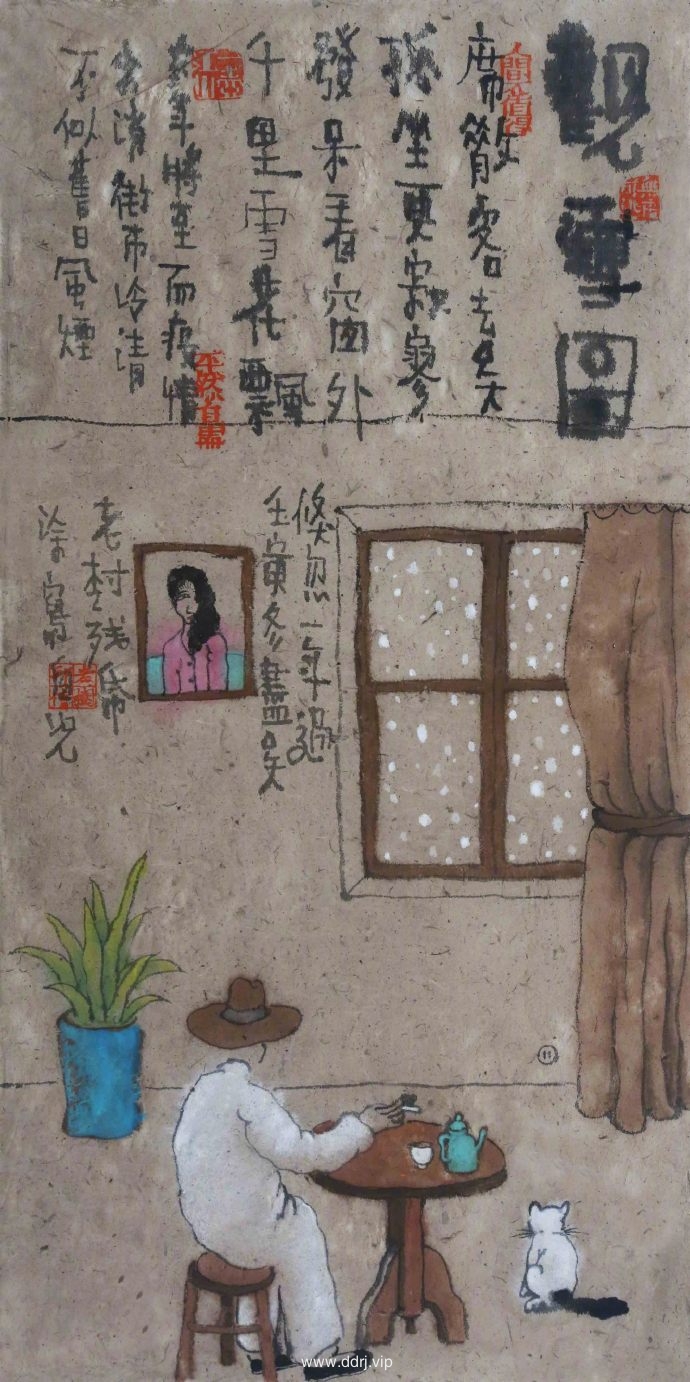 觀雪圖
席散賓客去矣
孤坐更寂寥
發呆看窗外
千里雪花飄
年將至而疫情
未消街市冷清
不似舊日風煙
倏忽一年過
壬寅冬盡矣
老村殘
涂寫自況
www.ddrj.vip